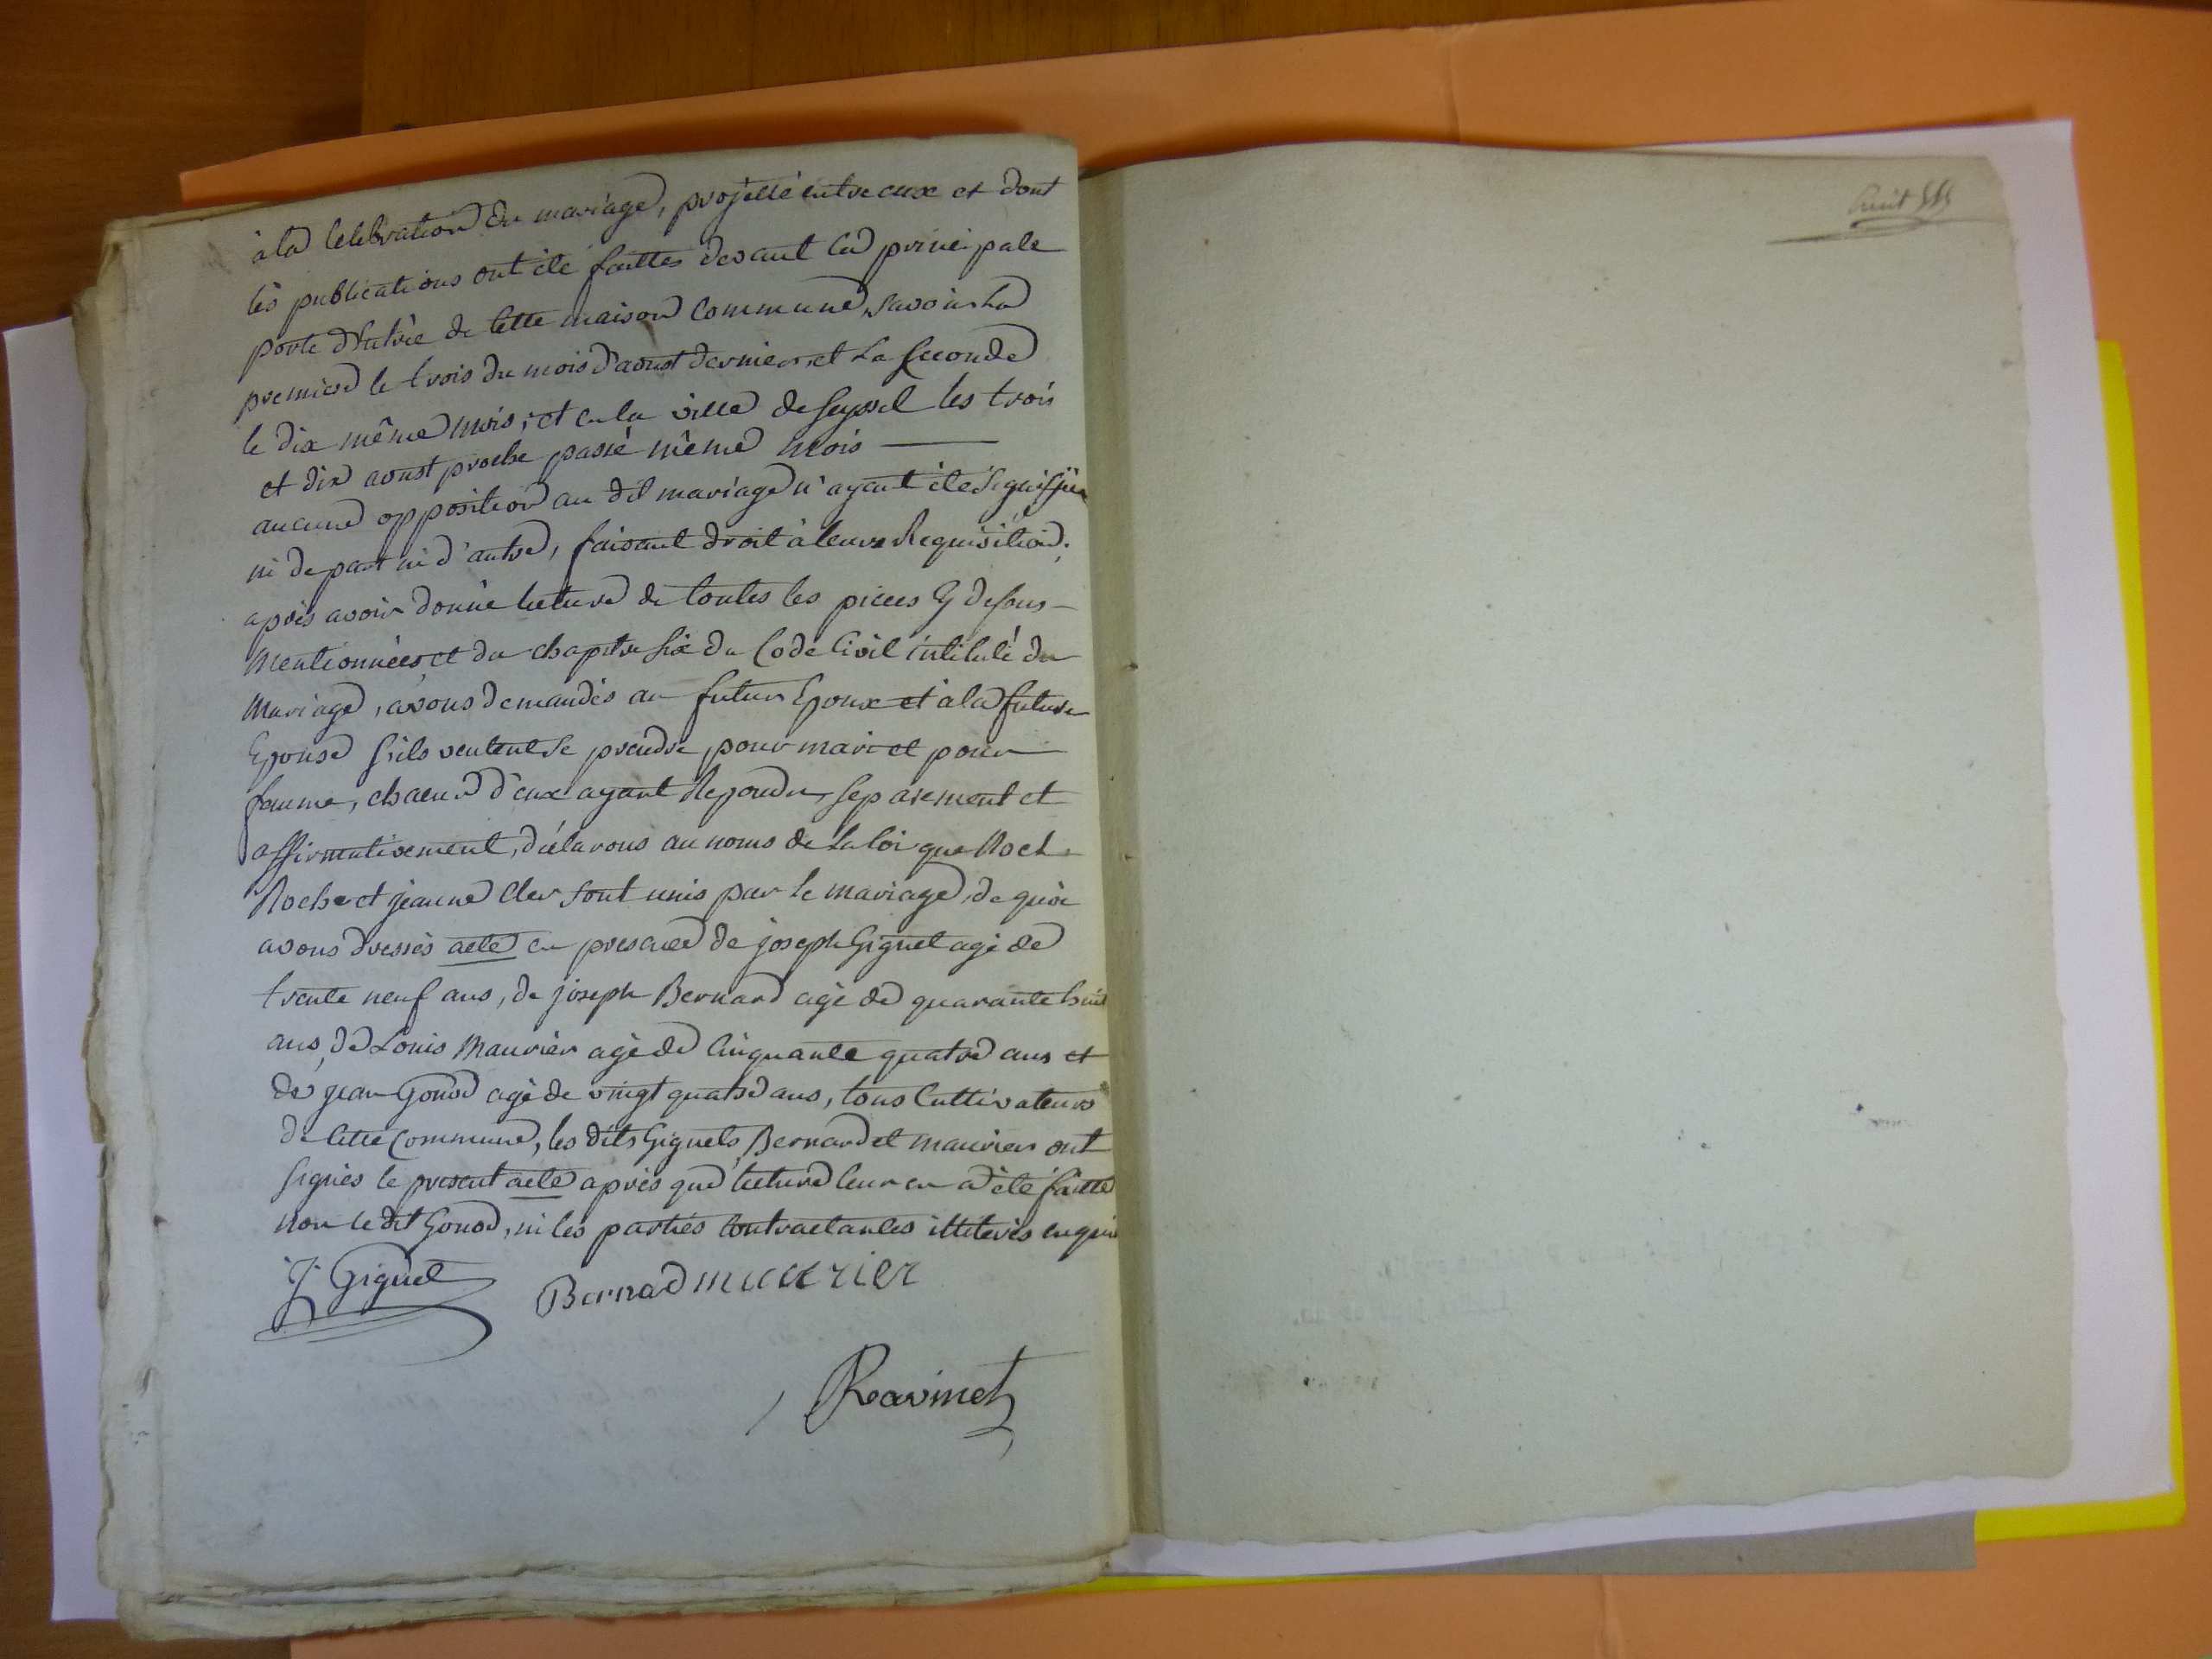 à la Celebration du mariage, projetté entre eux et dont
les publications ont été faittes devant la principale
porte d'Entrée de Cette maison Commune, savoir La
premiere le trois du mois d'aoust dernier, et La seconde
le dix même mois, et en la ville de Seyssel les trois
et dix aoust proche passé même mois
aucune opposition au dit mariage n'ayant été signifiée
ni de part ni d'autre, faisant droit à leurs Requisition,
après avoir donné lecture de toutes les pieces Cy dessus
Mentionnées, et du chapitre six du Code Civil intitulé du
Mariage, avons demandés au futur Epoux et à la future
Epouse s'ils veulent se prendre pour mari et pour
femme, chacun d'eux ayant Repondu separement et
affirmativement, déclarons au noms de La loi que Roch
Roche et jeanne Cler sont unis par le mariage, de quoi
avons dressés acte en presence de joseph Giguet agé de
trente neuf ans, de joseph Bernard agé de quarante huit
ans, de Louis Maurier agé de Cinquante quatre ans et
de jean Gonod agé de vingt quatre ans, tous Cultivateurs
de Cette Commune, les dits Giguets, Bernard et maurier ont
signés le present acte après que lecture leur en a été faitte
non le dit Gonod, ni les parties Contractantes illiterés enquis
J Giguet Bernad murier
Ravinet
huit